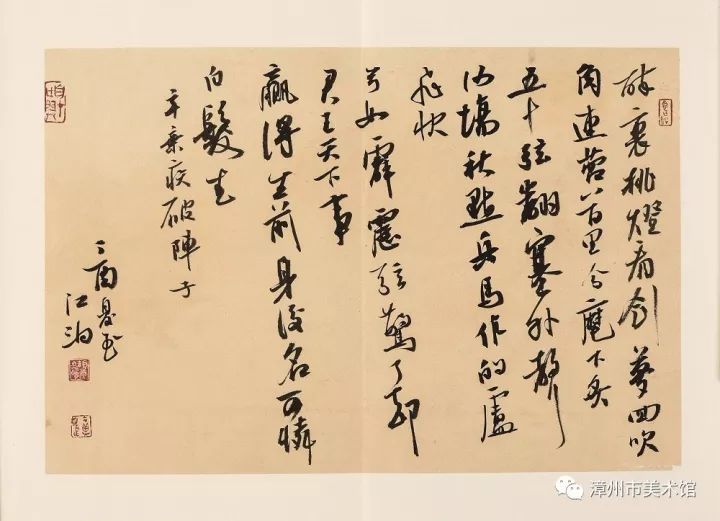 醉裏挑燈看劍夢回吹
角連營八百里分麾下炙
五十弦翻塞外聲
沙場秋點兵馬作的盧
飛快
弓如霹靂弦驚了卻
君王天下事
贏得生前身後名可憐
白髮生
辛棄疾破陣子
丁酉夏至
江
漳州市美术馆